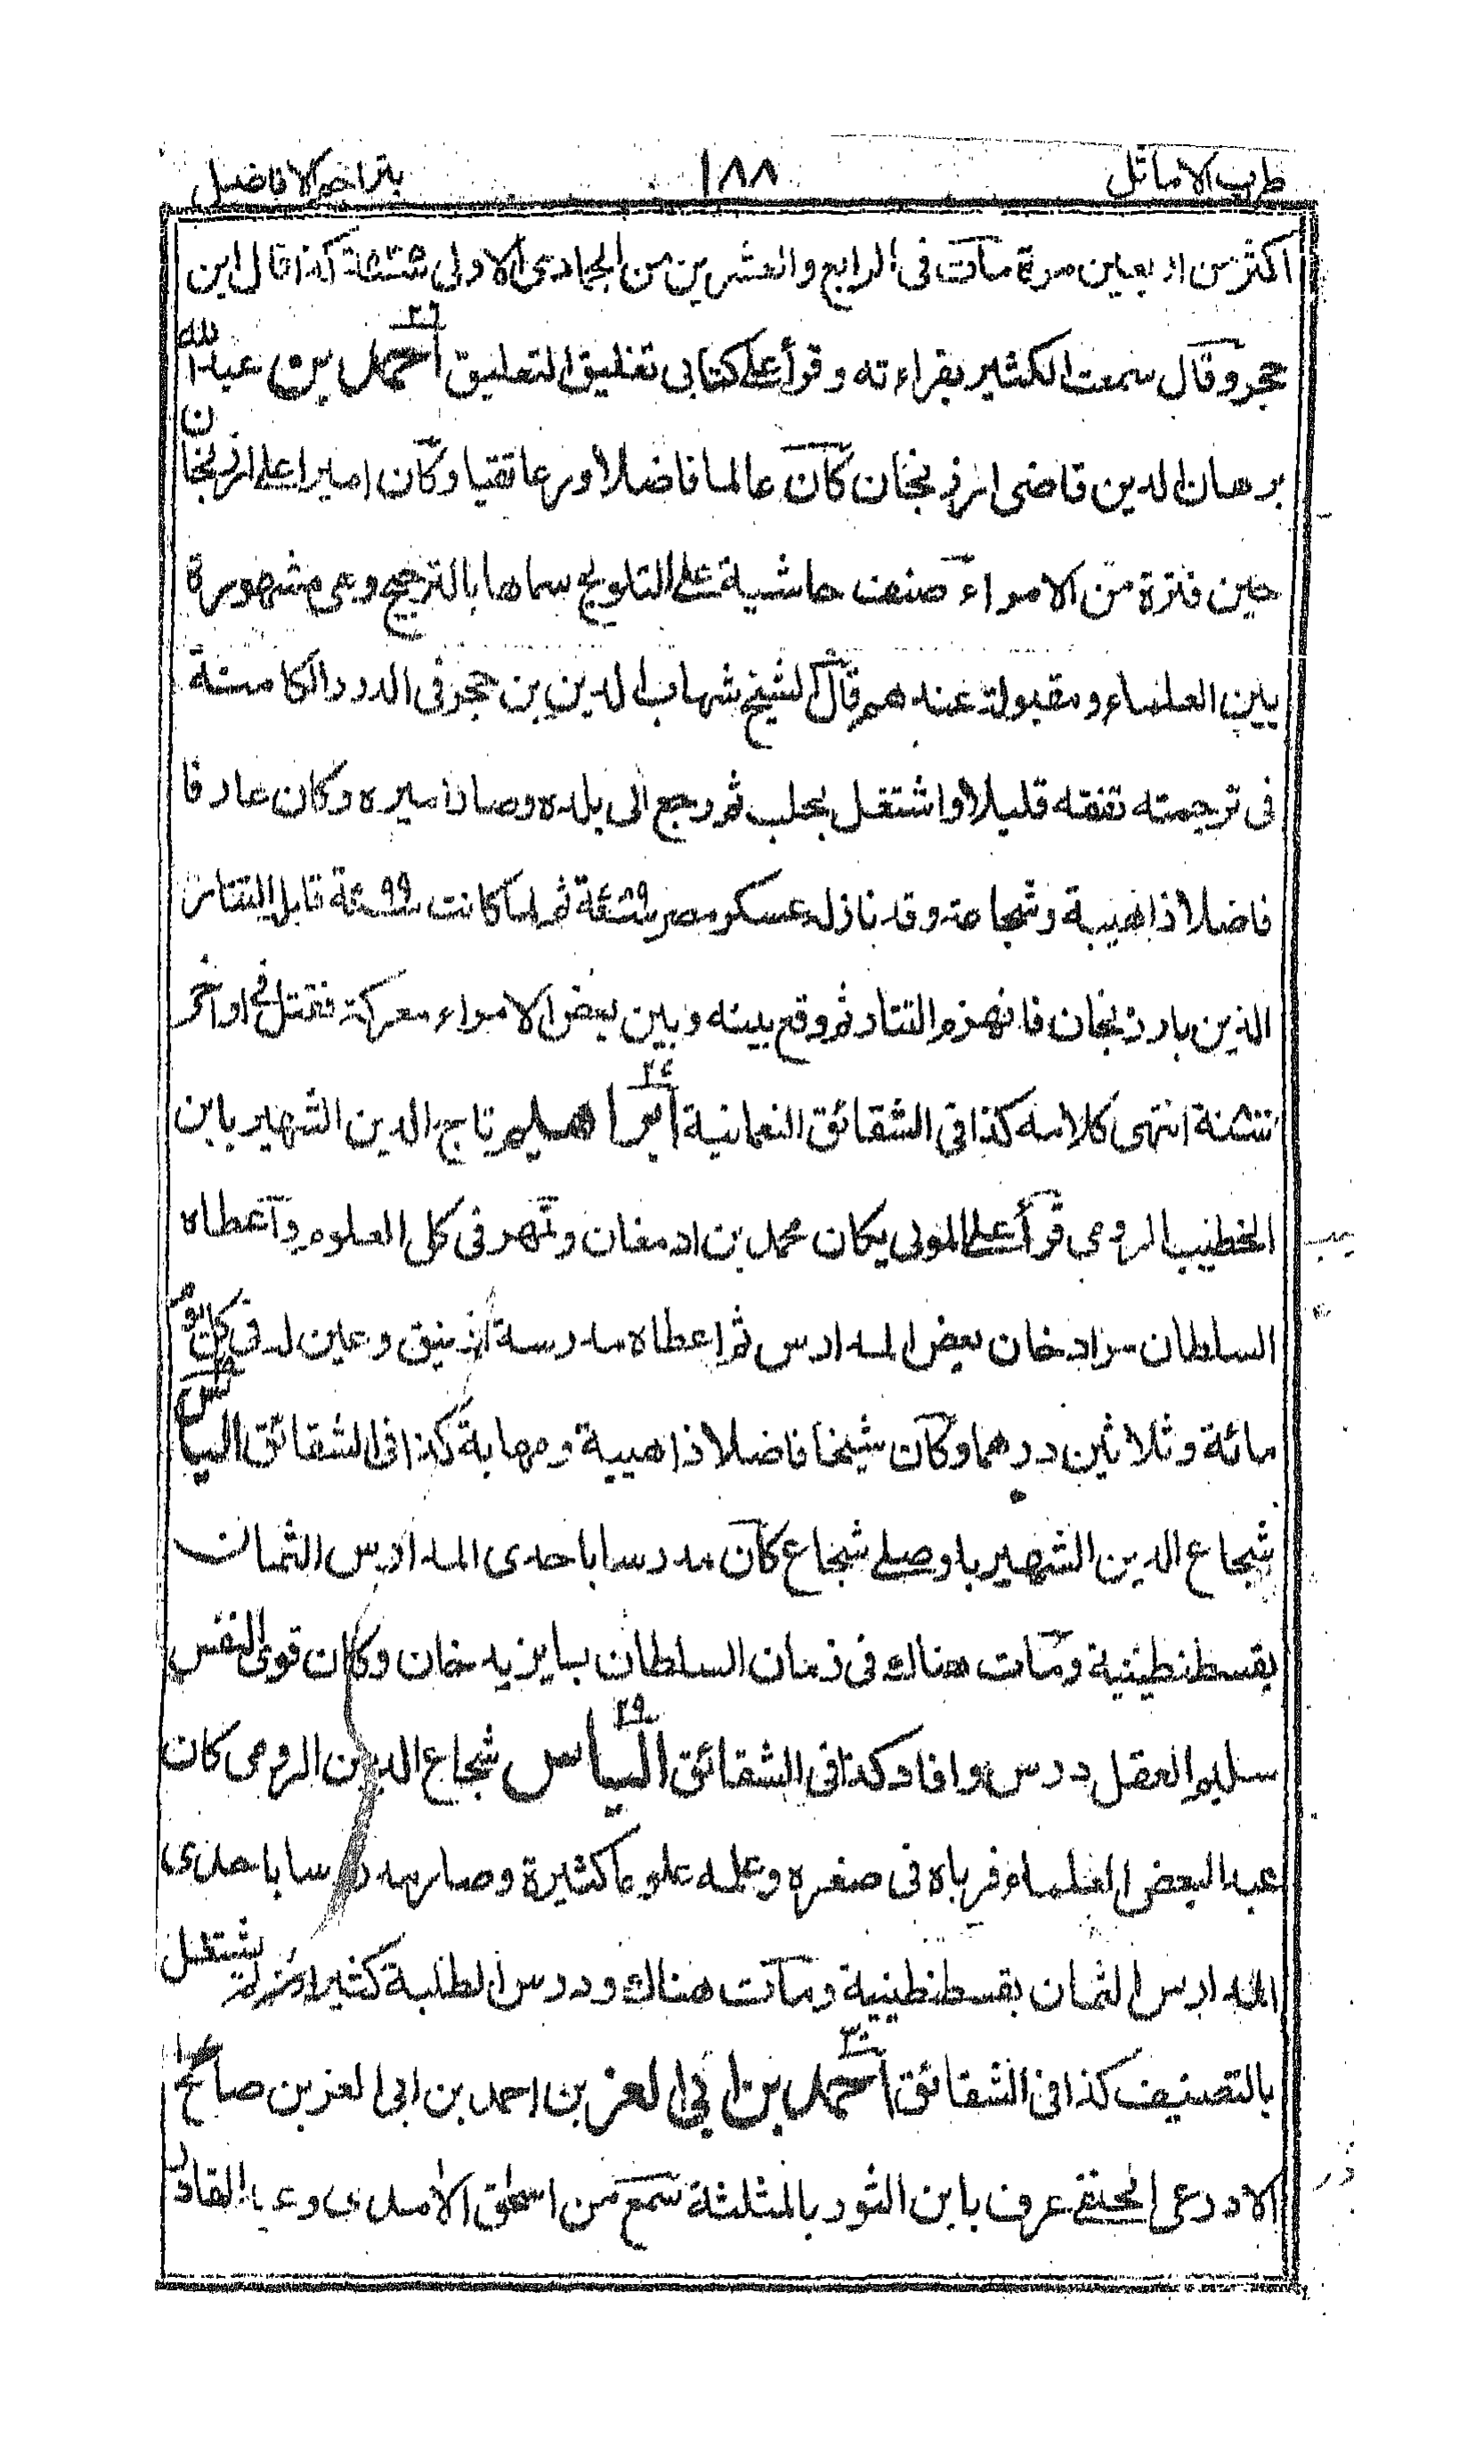 طرب الاماثل ١٨٨ بتراجم الافاضل
اكثر من اربعين مرة مات فى الرابع والعشرين من الجمادى الاولى كذا قال ابن
حجر وقال سمعت الكثير بقراءته وقرأ على كتابى تغليق التعليق احمد بن عبد الله
برهان الدين قاضى ارزنجان كان عالما فاضلا ورعا تقيا وكان اميرا على ارزنجان
حين فترة من الامراء صنف حاشية على التلويح سماها بالترجيح وهى مشهورة
بين العلماء ومقبولة عندهم قال الشيخ شهاب الدين بن حجر فى الدرر الكامنة
فى ترجمته تفقه قليلا واشتغل بحلب ثم رجع الى بلده وصار اميره وكان عارفا
فاضلا ذا هيبة وشجاعة وقد نازله عسكر مصر ٧٨٩ثمة ثم لما كانت ٧٩٩ثمة قابل التتار
الذين بارزنجان فانهزم التتار ثم وقع بينه وبين بعض الامراء معركة فقتل فى اواخر
انتهى كلامه كذا فى الشقائق النعمانية ابراهيم تاج الدين الشهير بابن
الخطيب الرومى قرأ على المولى يكان محمد بن ارمغان وتمهر فى كل العلوم واعطاه
السلطان مراد خان بعض المدارس ثم اعطاه مدرسة ازنيق وعين له فى كل يوم
مائة وثلاثين درهما وكان شيخا فاضلا ذا هيبة ومهابة كذا فى الشقائق الياس
شجاع الدين الشهير باوصلى شجاع كان مدرسا باحدى المدارس الثمان
بقسطنطينية ومات هناك فى زمان السلطان بايزيد خان وكان قوى النفس
سليم العقل درس وافاد كذا فى الشقائق ٢٩ الياس شجاع الدين الرومى كان
عبدا لبعض العلماء فرباه فى صغره وعلمه علوما كثيرة وصار مدرسا باحدى
المدارس الثمان بقسطنطينية ومات هناك ودرس الطلبة كثيرا ولم يشتغل
بالتصنيف كذا فى الشقائق ٣٠ احمد بن ابى العز بن احمد بن ابى العز بن صالح
الاذرعى الحنفى عرف بابن الثور بالمثلثة سمع من اسحق الآمدى وعبد القادر